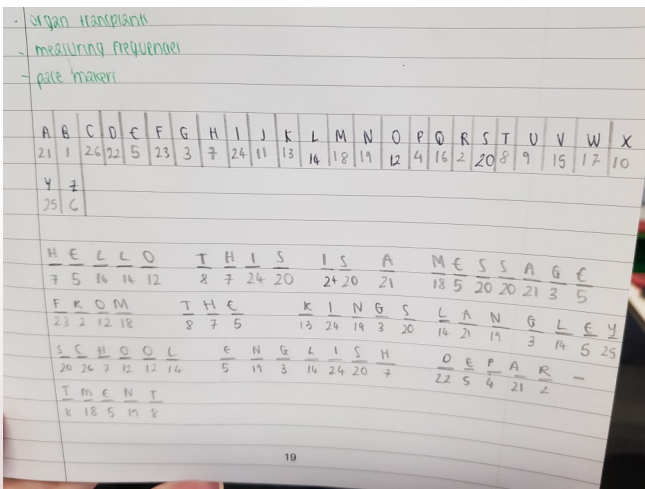 - organ transplants
- measuring frequencies
- pace makers
A B C D E F G H I J K L M N O P Q R S T U V W X
21 1 26 22 5 23 3 7 24 11 13 14 18 19 12 4 16 2 20 8 9 15 17 10
Y Z
25 6
H E L L O T H I S I S A M E S S A G E
7 5 14 14 12 8 7 24 20 24 20 21 18 5 20 20 21 3 5
F R O M T H E K I N G S L A N G L E Y
23 2 12 18 8 7 5 13 24 19 3 20 14 21 19 3 14 5 25
S C H O O L E N G L I S H D E P A R -
20 26 7 12 12 14 5 19 3 14 24 20 7 22 5 4 21 2
T M E N T
8 18 5 19 8
19